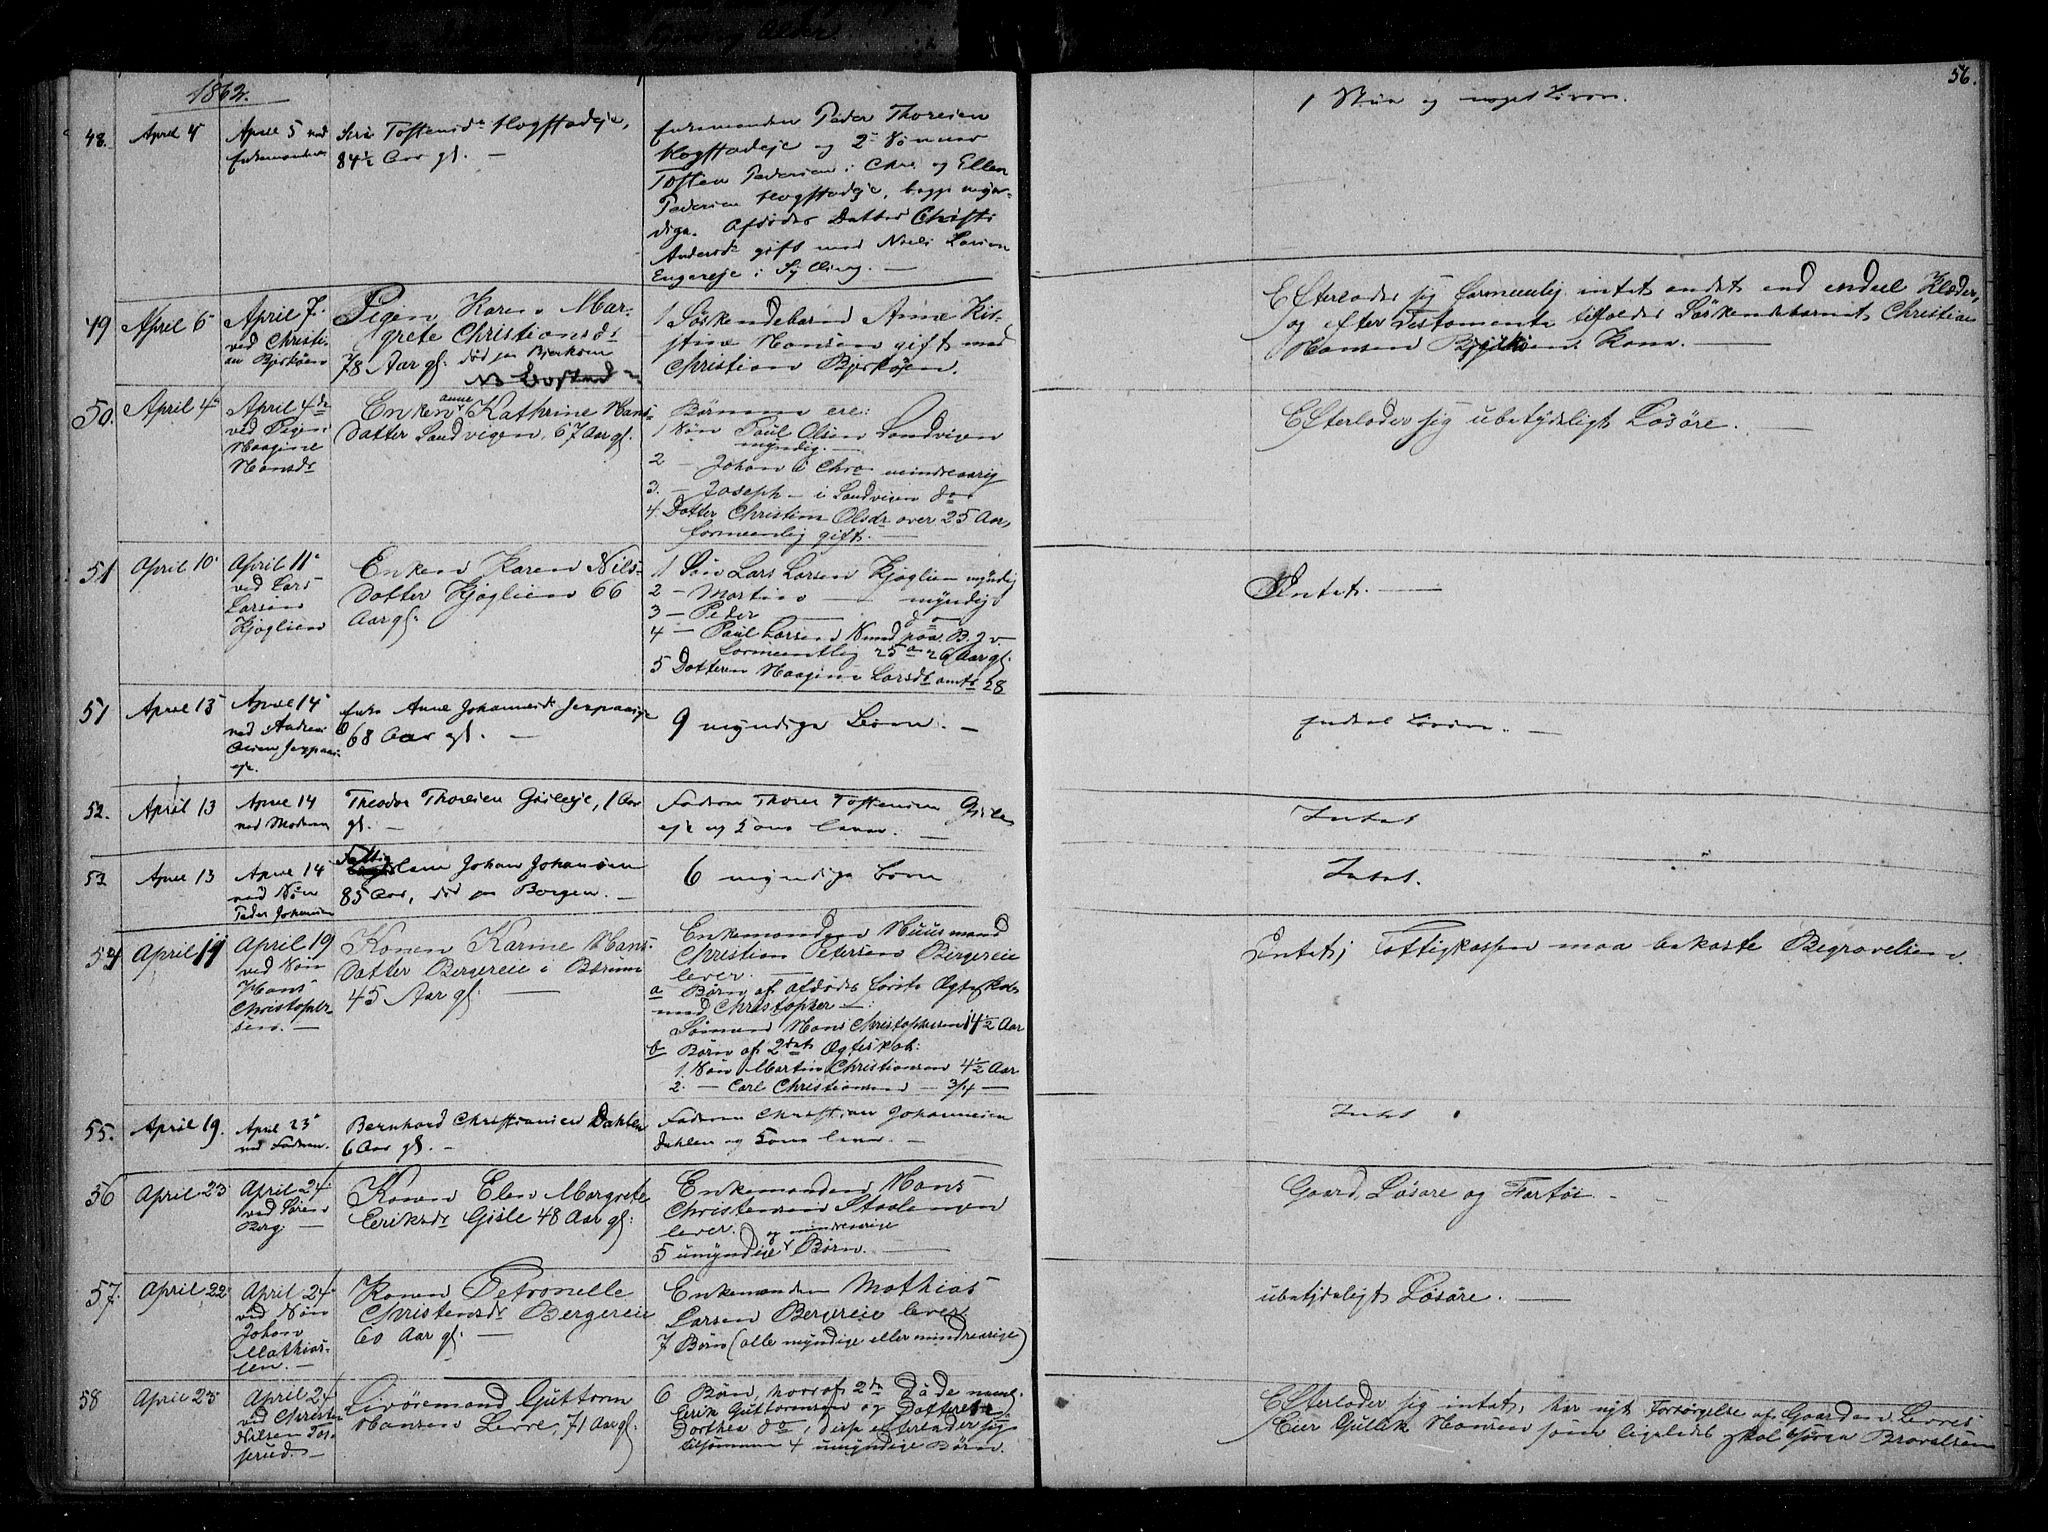 1862.
56.
48. April 4 April 5 ved Enkemanden
84½ Aar gl. —
Enkemanden Peder Thoresen
og 2 Sønner
Tosten Pedersen i Chra og Ellen
Pedersen
Afdødes Datter Christi
Andersd. gift med Niels Larsen
Engereje i Sylling. —
1 Stue og noget Løsøre.
49 April 6 April 7 ved Christian Bjerkøen
Pigen Karen Margrete Christiansdr
78 Aar gl. død paa Bjerkøen
1 Søskendebarn Anne Kistine Hansen gift med
Christian Bjerkøen.
Efterlader sig formeenlig intet andet end endeel Klæder,
og efter Testamente tilfalder Søskendebarnet Christian
Hansen Bjerkøens Kone. —
50. April 4 April 4de
ved Pigen
Maagine
Hansdr
Enken Anne Kathrine Hans-
datter Sandvigen, 67 Aar gl.
Børnene ere:
1 Søn Paul Olsen Sandvigen
myndig. —
2 — Johan i Chra mindreaarig
3. — Joseph — i Sandvigen do
4. Datter Christine Olsdr over 25 Aar,
formeenlig gift. —
Efterlader sig ubetydeligt Løsøre. —
51 April 10 April 11
ved Lars
Larsen
Kjaglien
Enken Karen Nils-
datter Kjaglien 66
Aar gl.
1 Søn Lars Larsen Kjaglien myndig
2 — Martin — myndig
3 — Peder — do
4 — Paul Larsen
formeentlig 25 a 26 Aar gl.
5 Datteren Maagine Larsdr omtr 28
Intet. —
51 April 13 April 14
Enke Anne Johannesdr
68 Aar gl. —
9 myndige Børn. —
Endeel Løsøre. —
52. April 13 April 14
ved Moderen
Theodor Thoresen Gisleeje, 1 Aar
gl. —
Faderen Thorer Tostensen Gisle
eje og Kone lever. —
Intet
53 April 13 April 14
ved Søn
Peder Johansen
Fattiglem Johan Johansen
85 Aar, død paa Borgen. —
6 myndige Børn
Intet.
54 April 19 April 19
ved Søn
Hans
Christopher-
sen. —
Konen Karine Hans-
datter Bergereie i Bærum
45 Aar gl. —
Enkemanden Huusmand
Christian Petersen Bergereie
lever. —
a Børn af Afdødes første Ægteskab
med Christopher —:
Sønnen Hans Christophersen 14½ Aar
b Børn af 2det Ægteskab:
1. Søn Martin Christiansen 4½ Aar
2. — Carl Christiansen — 3/4 —
Intet; Fattigkassen maa bekoste Begravelsen.
55. April 19. April 23
ved Faderen.
Bernhard Christiansen Dahlen
6 Aar gl. —
Faderen Christian Johannesen
Dahlen og Kone lever. —
Intet
56 April 23 April 24
ved Søren
Berg. —
Konen Elen Margrete
Eeriksdr Gisle 48 Aar gl.
Enkemanden Hans
Christensen Staalengen
lever.
5 umyndige og mindreaarige Børn. —
Gaard, Løsøre og Fartøi. —
57. April 22 April 24
ved Søn
Johan
Mathias-
sen. —
Konen Petronelle
Christensdr Bergereie
60 Aar gl. —
Enkemanden Mathias
Larsen Bergereie lever
7 Børn (alle myndige eller mindreaarige)
ubetydeligt Løsøre. —
58 April 23 April 24
ved Christen
Nilsen
Guttorm
Hansen Levre, 71 Aar gl.
6 Børn, hvoraf 2de Døde neml.
Eerik Guttormsen og Datteren
Dorthea do, disse efterlader sig
tilsammen 4 umyndige Børn.
Efterlader sig intet, har nydt Forsørgelse af Gaarden Levres
Eier Gullik Hansen som ligeledes skal besørge Begravelsen